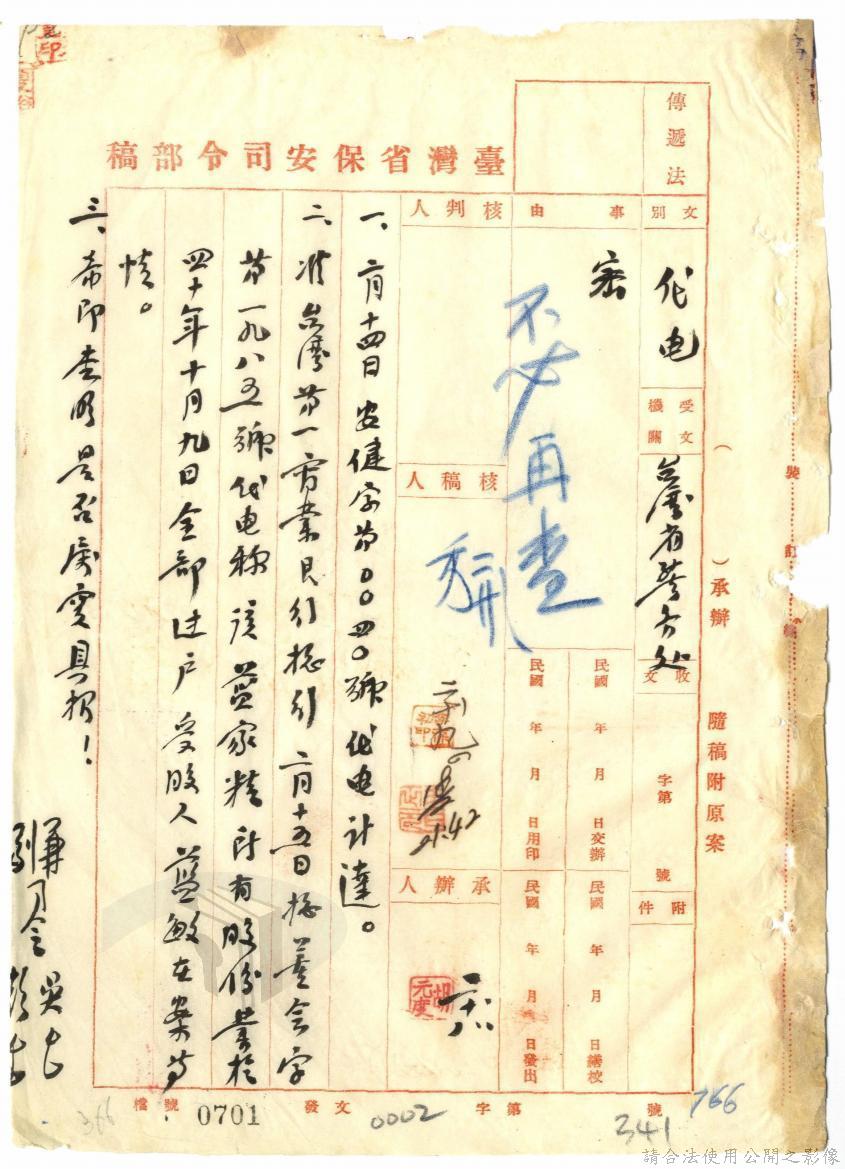 臺灣省保安司令部稿
傳遞法
文別
代电
受文機關
台灣省警务处
收文
字第
號
附件
事由
密
不必再查
民國 年 月 日交辦
民國 年 月 日繕校
民國 年 月 日用印
民國 年 月 日發出
核判人
核稿人
承辦人
胡元度
一、二月十四日安健字第0040號代电计達。
二、准台灣第一商業艮行总行二月十五日总業会字
第一九八五號代电称該藍家精所有股份業於
四十年十月九日全部过户受股人藍敏在案等
情。
三、希即查明是否屬实具报！
兼司令
吳
彭
(
)承辦
隨稿附原案
裝訂線
檔號
0701
發文
字第
號
0002
341
166
366
請合法使用公開之影像